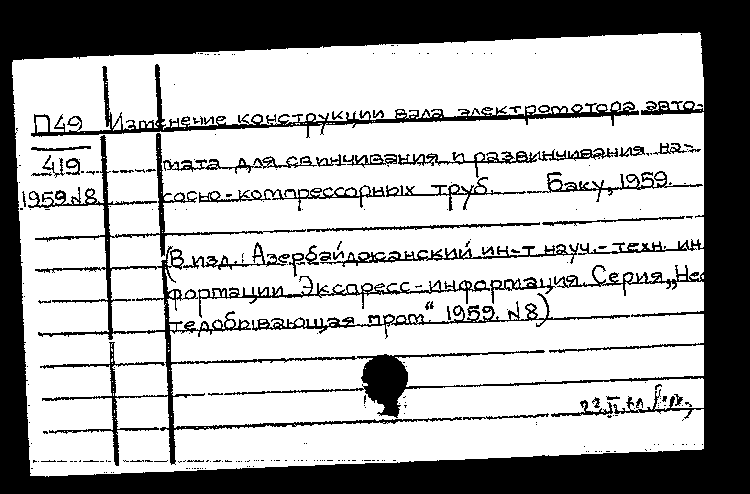 П49 Изменение конструкции вала электромотора авто-
419 мата для свинчивания и развинчивания на-
1959.N8 сосно-компрессорных труб. Баку, 1959.
(В изд.: Азербайджанский ин-т науч.-техн. ин
формации. Экспресс-информация. Серия „Неф
тедобывающая пром“ 1959. N8)